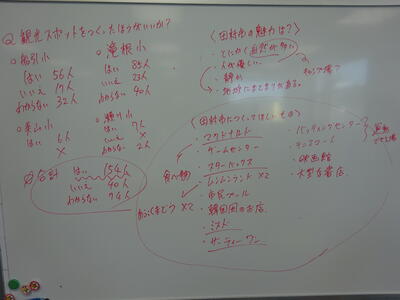 Q 観光スポットをつくったほうがいいか?
○船引小
はい 56人
いいえ 17人
わからない 32人
○滝根小
はい 85人
いいえ 23人
わからない 40人
○美山小
はい 6人
×
×
○瀬川小
はい 7人
×
わからない 2人
合計 はい 154人
いいえ 40人
わからない 74人
〈田村市の魅力は?〉
・とにかく自然が多い
・人が優しい
・静か
・地域にまとまりがある。
キャンプ場?
〈田村市につくってほしいもの〉
・マクドナルド
・ゲームセンター
・スターバックス
・市民プール
・韓国風のお店
・ミスド
・サーティーワン
・バッティングセンター
・テニスコート
・映画館
・大型書店
食べ物
運動できる場
×2